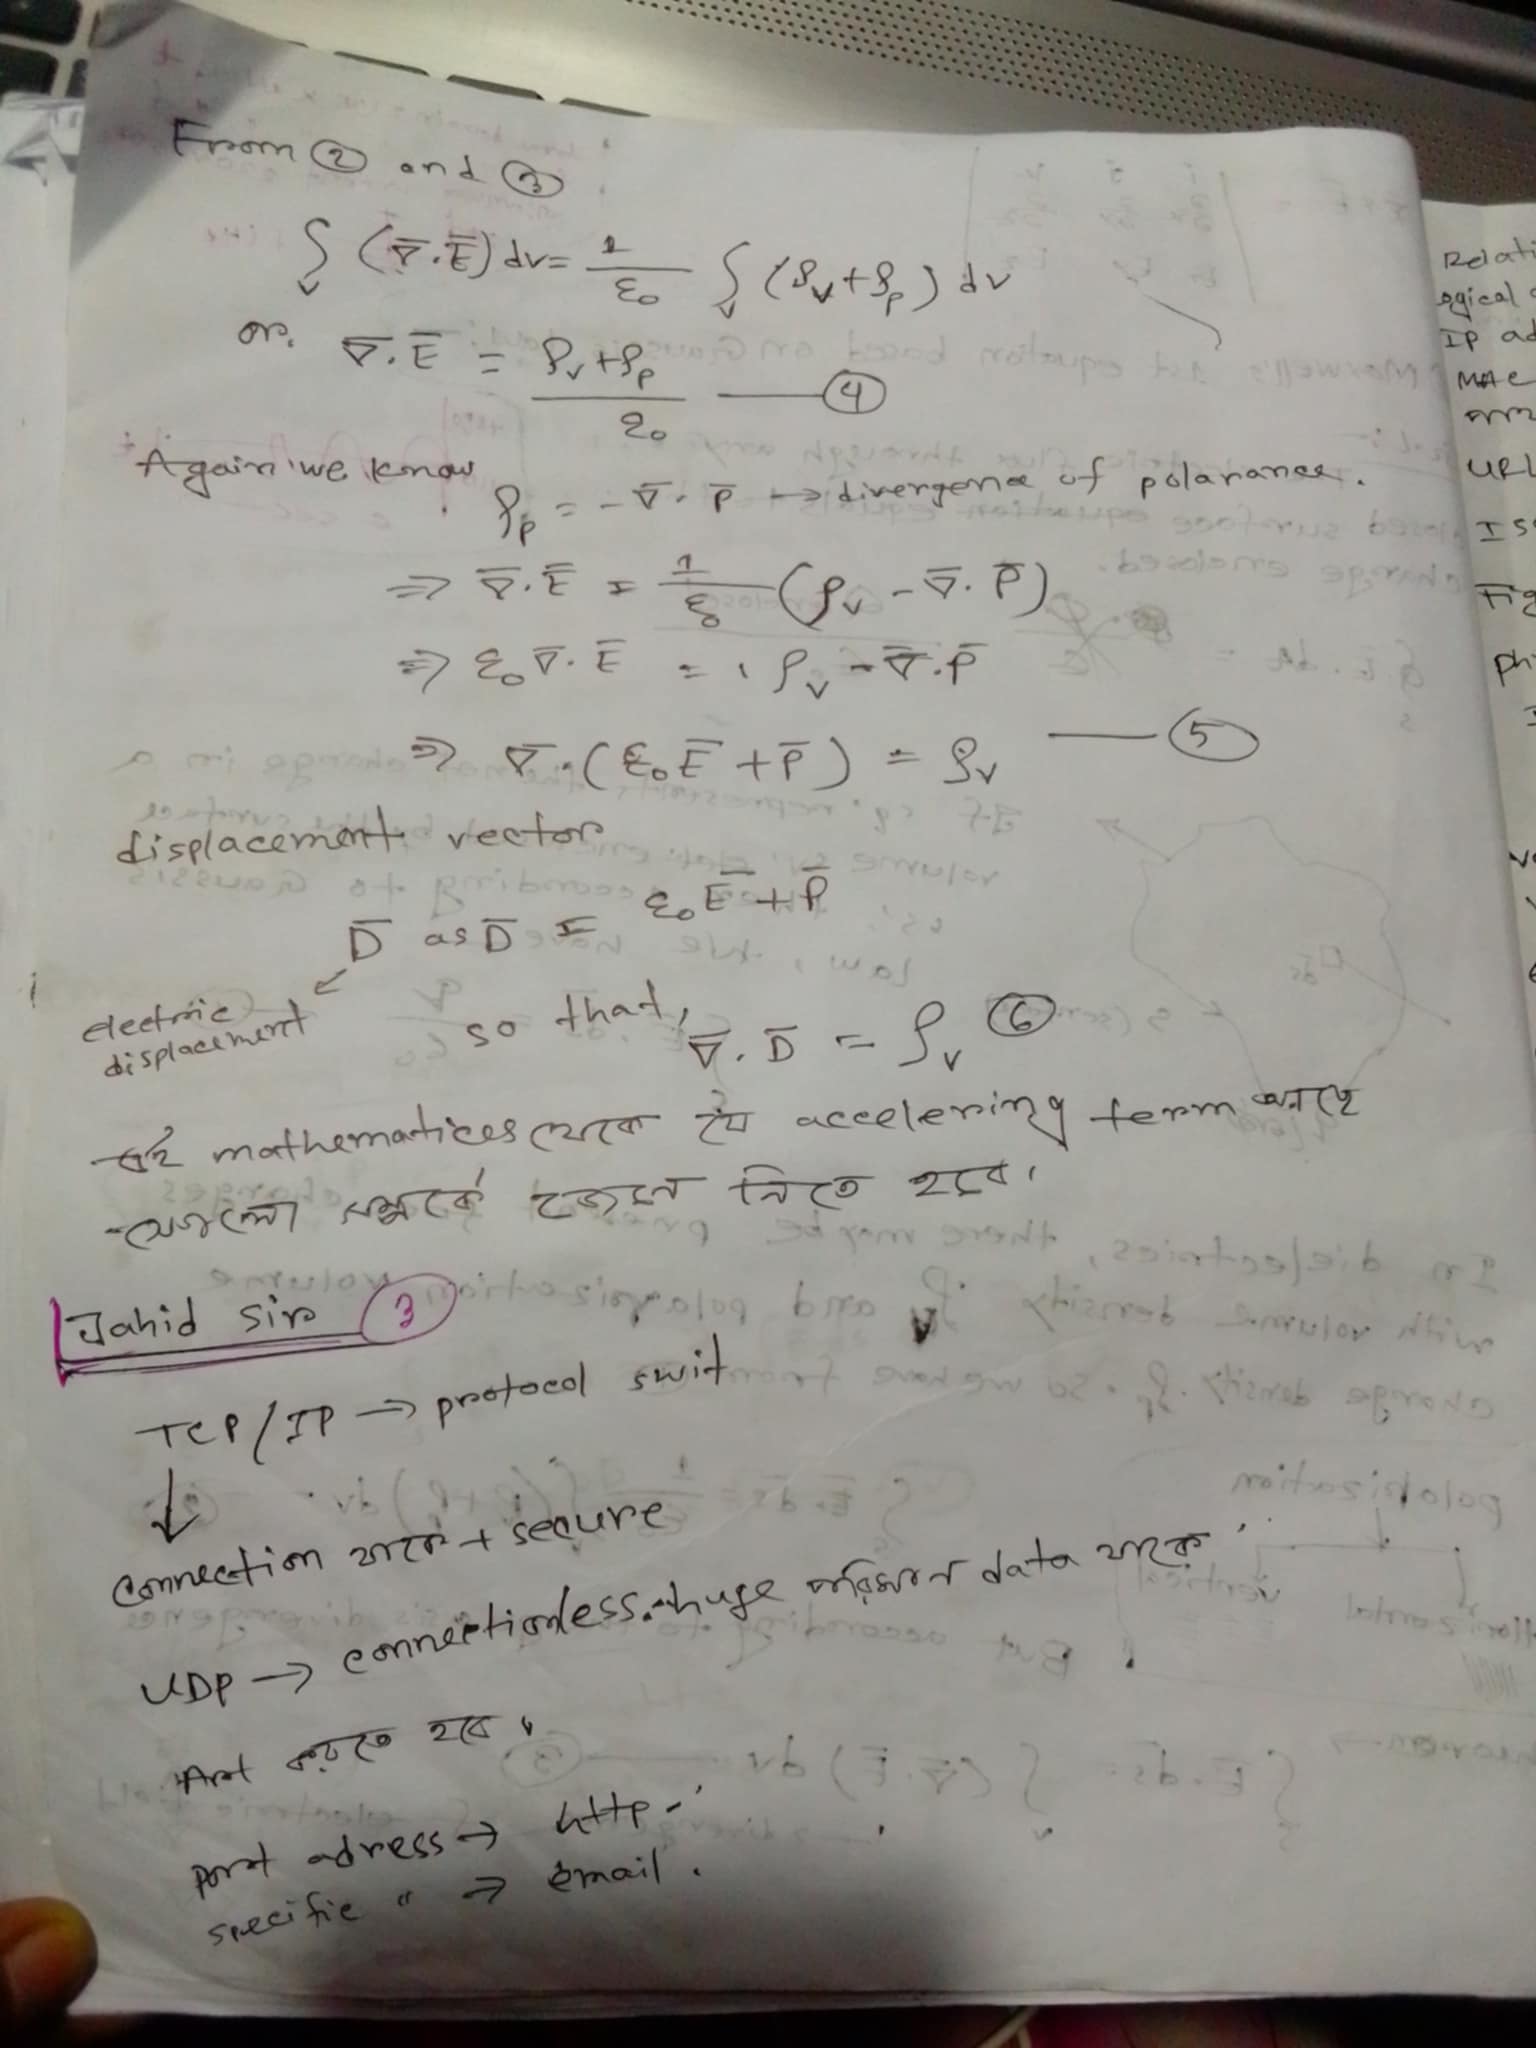 From ② and ③
∫v (∇̅.E̅) dv = 1/ε₀ ∫v (ρv+ρp) dv
or, ∇̅.E̅ = (ρv+ρp)/ε₀ —— ④
Again we know
ρp = - ∇̅. P̅ → divergence of polarance.
⇒ ∇̅.E̅ = 1/ε₀ (ρv - ∇̅. P̅)
⇒ ε₀ ∇̅. E̅ = ρv - ∇̅.P̅
⇒ ∇̅.(ε₀E̅ + P̅) = ρv —— ⑤
displacement vector
D̅ as D̅ = ε₀E̅ + P̅
electric
displacement
so that, ∇̅. D̅ = ρv ⑥
এই mathematices থেকে যে accelering term আছে
সম্পর্কে জেনে নিতে হবে।
Jahid Sir ③
TCP/IP → protocol swit
↓
Connection থাকে + secure
UDP → connectionless. huge পরিমান data থাকে
করতে হবে।
port adress → http -
specific " → email.
Relati
ogical
IP ad
MAC
URL
Fig